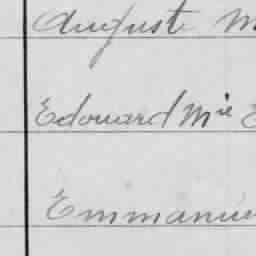 August M
Edouard Mie E
Emmanue